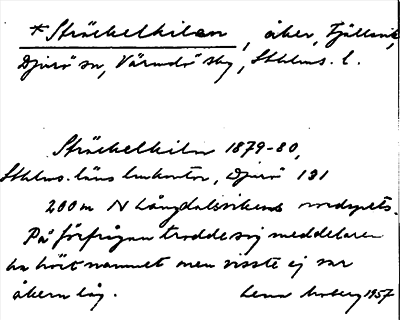 * Sträckelkilen, åker, Fjällsvik,
Djurö sn, Värmdö skg, Sthlms. l.
Sträckelkiln 1879-80,
Sthlms. läns lmkontor, Djurö 131
200 m N Långdalsvikens nordspets.
På förfrågan trodde sig meddelaren
ha hört namnet men visste ej var
åkern låg. Lena Moberg 1957